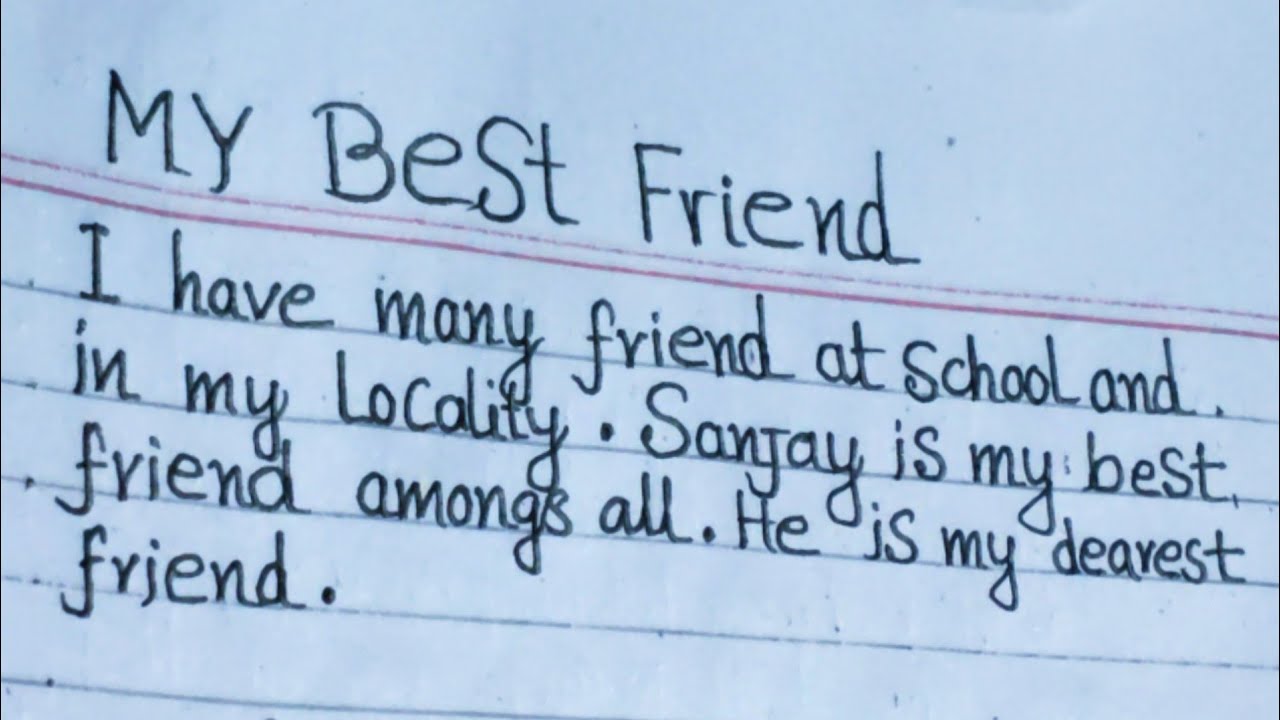 My Best Friend
I have many friend at School and
in my Locality. Sanjay is my best
friend amongs all. He is my dearest
friend.